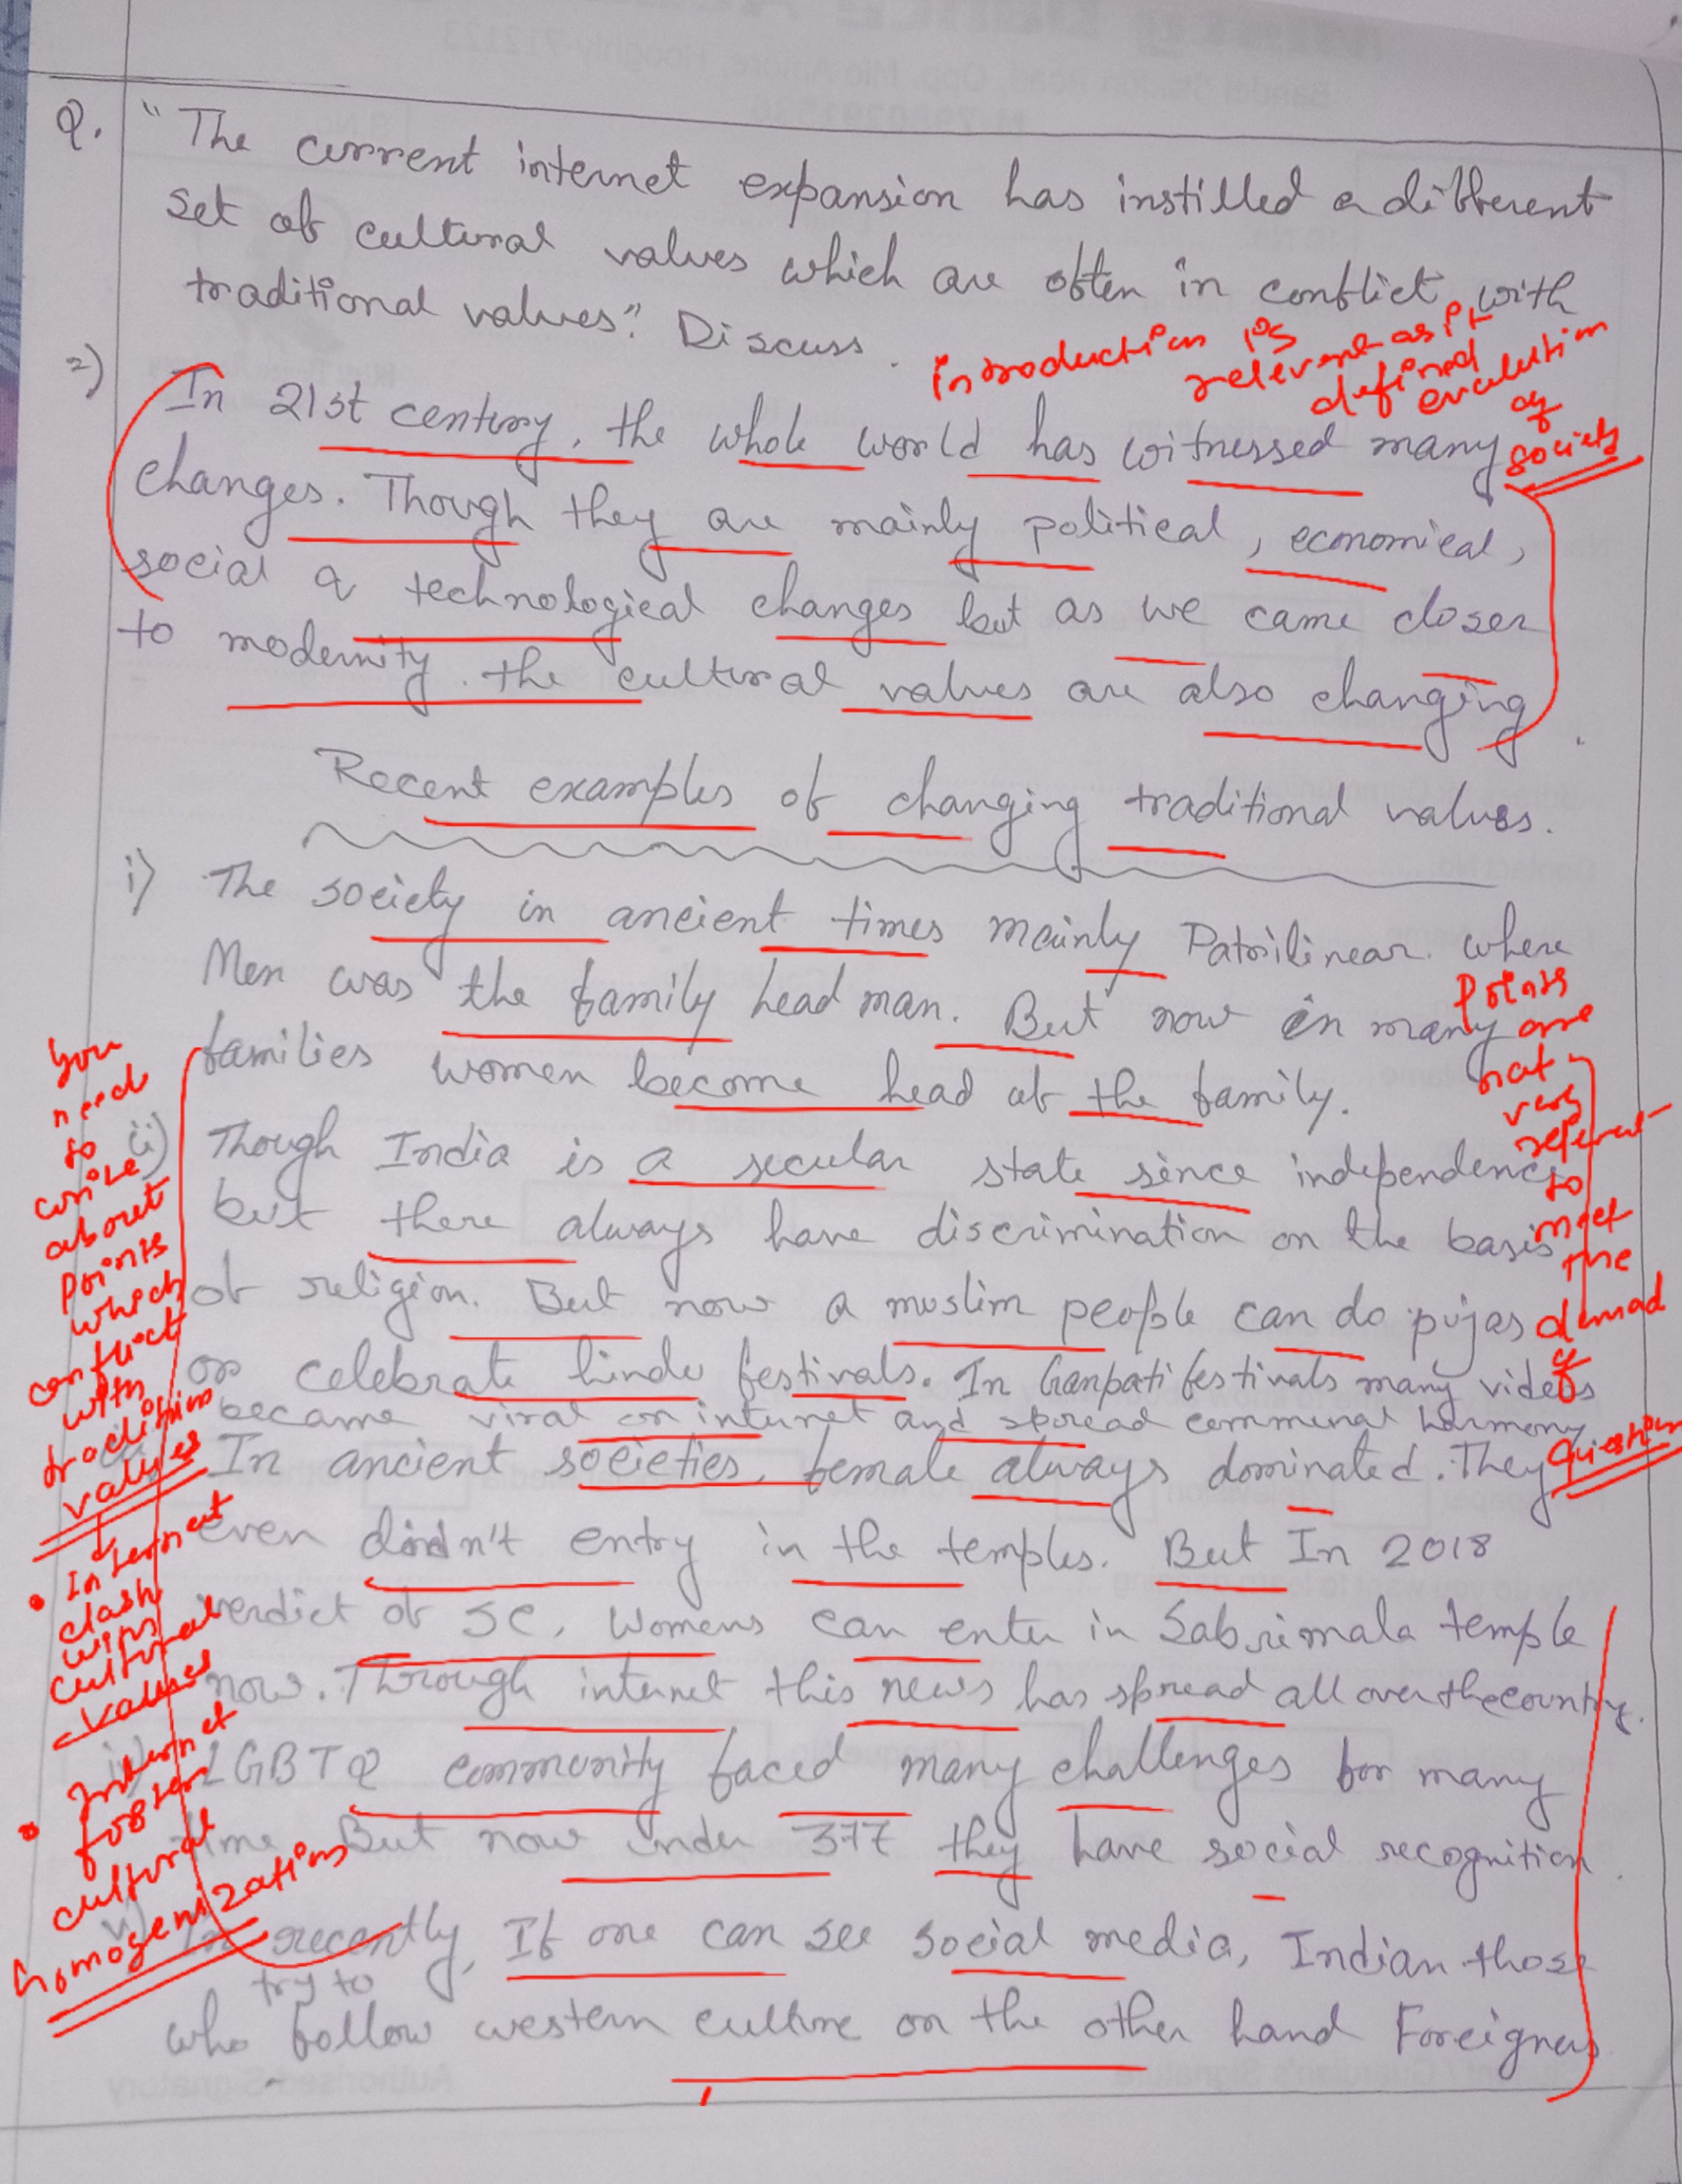 Q. "The current internet expansion has instilled a different
set of cultural values which are often in conflict with
traditional values". Discuss.
introduction is
relevent as it
defined
evolution
of
society
2) In 21st century, the whole world has witnessed many
changes. Though they are mainly political, economical,
social & technological changes but as we came closer
to modernity. the cultural values are also changing.
Recent examples of changing traditional values.
i) The society in ancient times mainly Patrilinear where
Men was the family head man. But now in many
families women become head of the family.
ii) Though India is a secular state since independence
but there always have discrimination on the basis
of religion. But now a muslim people can do pujas
or celebrate hindu festivals. In Ganpati festivals many videos
became viral on internet and spread communal harmony.
In ancient societies, female always dominated. They
even didn't entry in the temples. But In 2018
verdict of SC, Womens can enter in Sabrimala temple
now. Through internet this news has spread all over the country.
iv) LGBTQ community faced many challenges for many
time. But now under 377 they have social recognition.
v) In recently, If one can see social media, Indian those
try to
who follow western culture on the other hand Foreigners
Points
are
not
very
referent
to
meet
the
demad
of
Question
You
need
to
write
about
points
which
conflict
with
tradition
values
• Internet
clash
with
cultural
values
• Internet
foster
cultural
homogenizations